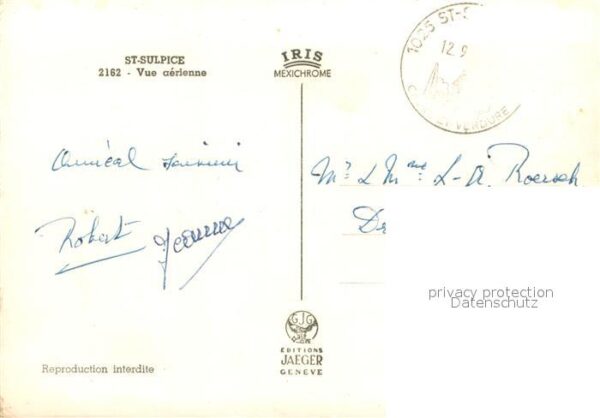 ST-SULPICE
2162 - Vue aérienne
IRIS
MEXICHROME
1025 ST-S
12.9
VERDURE
Amical
Robert Jeanne
Mr & Mme L-A. Roersch
Dr
privacy protection
Datenschutz
GJG
EDITIONS
JAEGER
GENEVE
Reproduction interdite